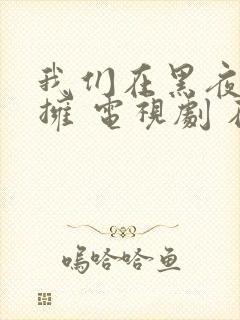 我们在黑夜
擁 電視劇
嗚哈哈鱼